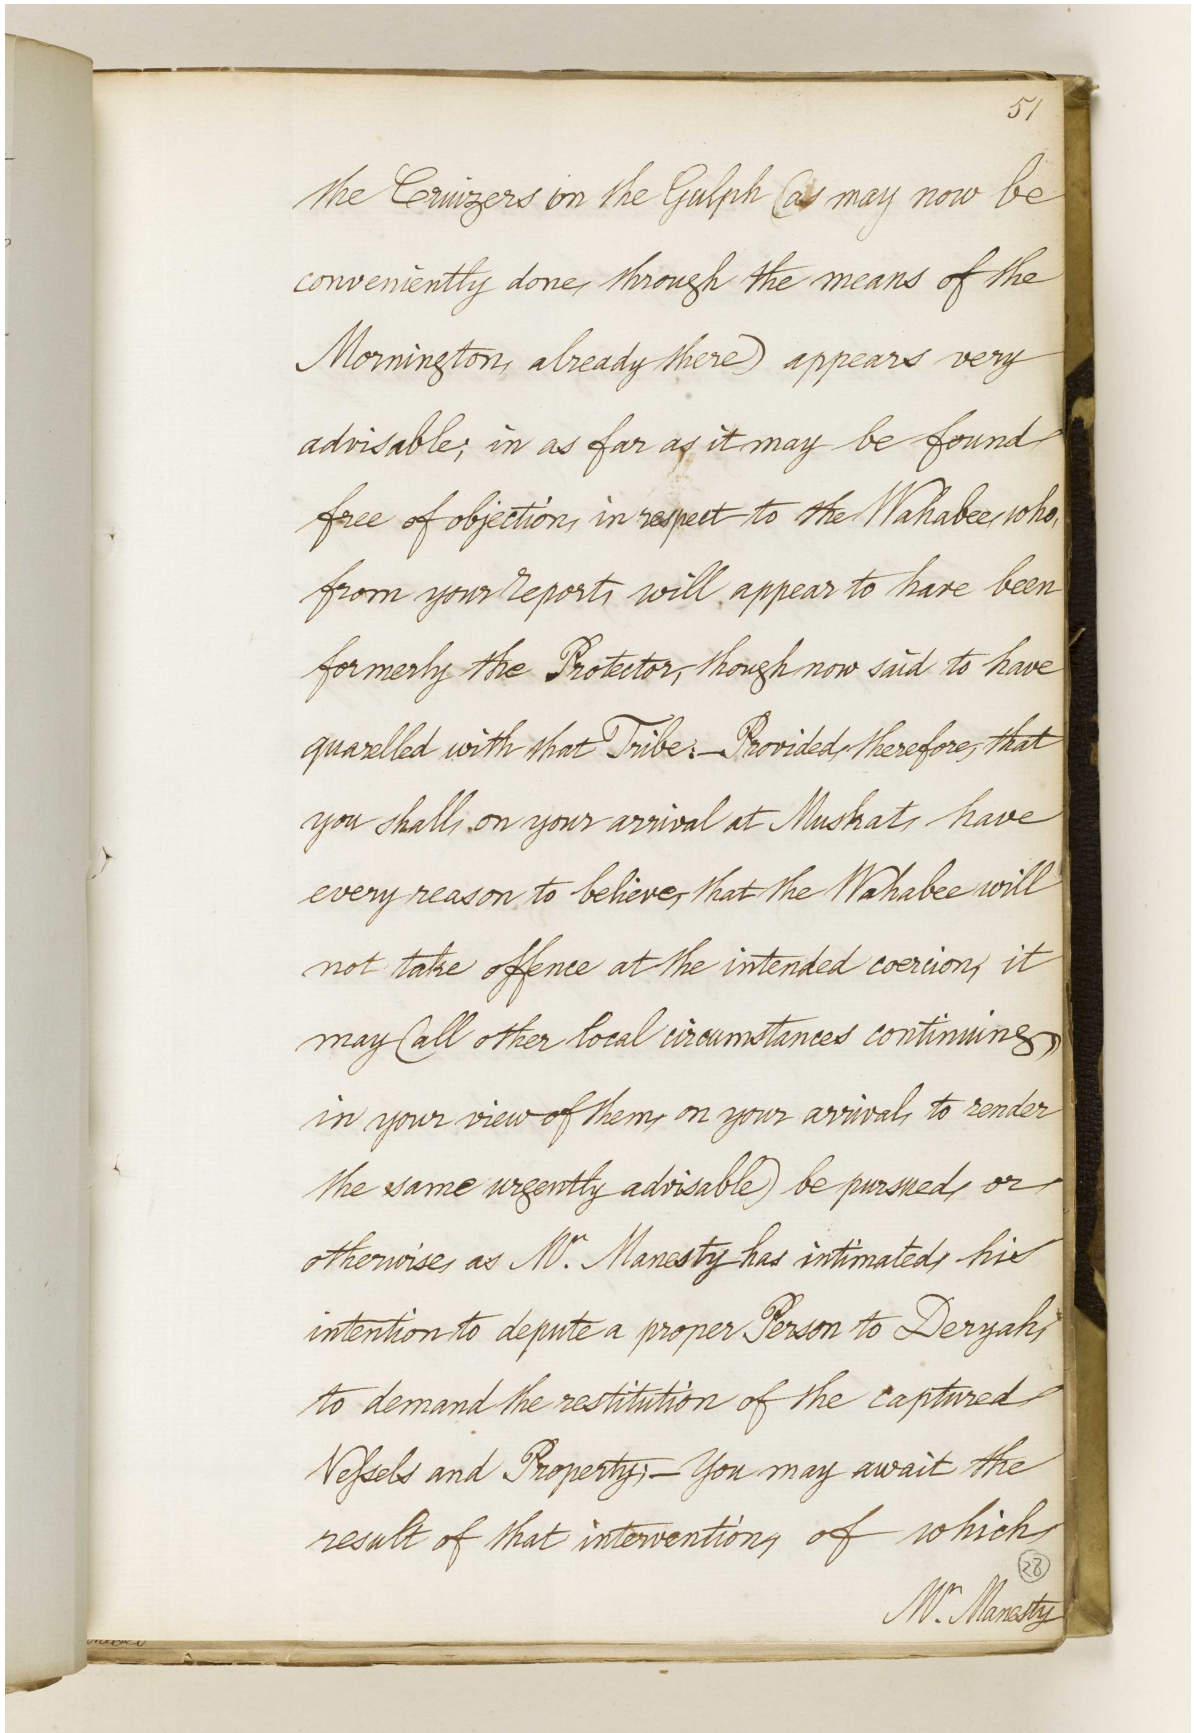 51
the Cruizers in the Gulph (as may now be
conveniently done, through the means of the
Mornington, already there) appears very
advisable; in as far as it may be found
free of objection, in respect to the Wahabee, who,
from your reports, will appear to have been
formerly the Protector, though now said to have
quarelled with that Tribe:— Provided, therefore, that
you shall, on your arrival at Muskat, have
every reason to believe, that the Wahabee will
not take offence at the intended coercion, it
may (all other local circumstances continuing,
in your view of them, on your arrival, to render
the same urgently advisable) be pursued, or
otherwise, as Mr. Manesty has intimated, his
intention to depute a proper Person to Deryah,
to demand the restitution of the captured
Vessels and Property;— You may await the
result of that intervention, of which
28
Mr. Manesty